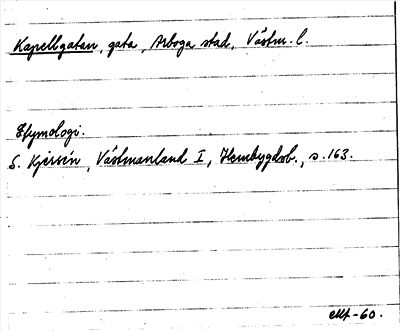 Kapellgatan, gata, Arboga stad, Västm. l.
Etymologi.
S. Kjersén, Västmanland I, Hembygdsb., s. 163.
Mt-60.